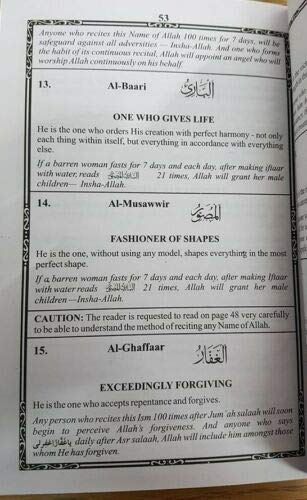 53
Anyone who recites this Name of Allah 100 times for 7 days, will be
safeguard against all adversities — Insha-Allah. And one who forms
the habit of its continuous recital, Allah will appoint an angel who will
worship Allah continuously on his behalf
13. Al-Baari اَلْبَارِئُ
ONE WHO GIVES LIFE
He is the one who orders His creation with perfect harmony - not only
each thing within itself, but everything in accordance with everything
else.
If a barren woman fasts for 7 days and each day, after making iftaar
with water, reads 21 times, Allah will grant her male
children— Insha-Allah.
14. Al-Musawwir اَلْمُصَوِّرُ
FASHIONER OF SHAPES
He is the one, without using any model, shapes everything in the most
perfect shape.
If a barren woman fasts for 7 days and each day, after making Iftaar
with water, reads 21 times, Allah will grant her male
children —Insha-Allah.
CAUTION: The reader is requested to read on page 48 very carefully
to be able to understand the method of reciting any Name of Allah.
15. Al-Ghaffaar اَلْغَفَّارُ
EXCEEDINGLY FORGIVING
He is the one who accepts repentance and forgives.
Any person who recites this Ism 100 times after Jum`ah salaah will soon
begin to perceive Allah's forgiveness. And anyone who says
يَا غَفَّارُ اغْفِرْلِي daily after Asr salaah, Allah will include him amongst those
whom He has forgiven.